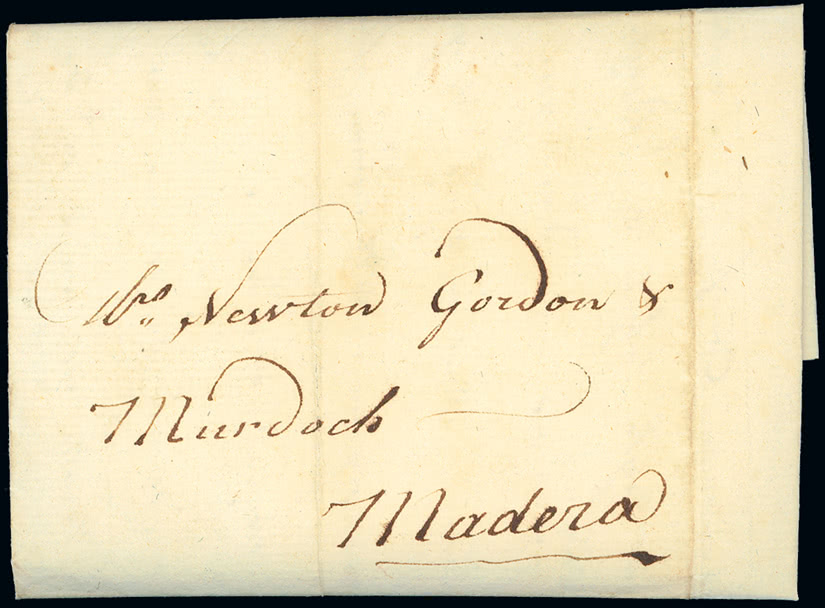 Mrs Newton Gordon &
Murdoch
Madera